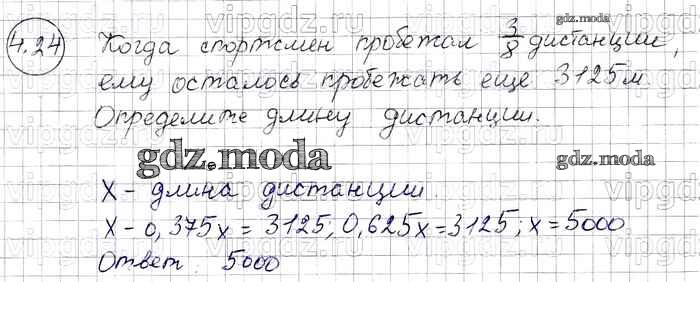 4.24 Когда спортсмен пробежал 3/8 дистанции,
ему осталось пробежать еще 3125 м
Определите длину дистанции.
gdz.moda
x - длина дистанции.
x - 0,375x = 3125, 0,625x = 3125; x = 5000
Ответ: 5000
gdz.moda
gdz.moda
vipgdz.ru